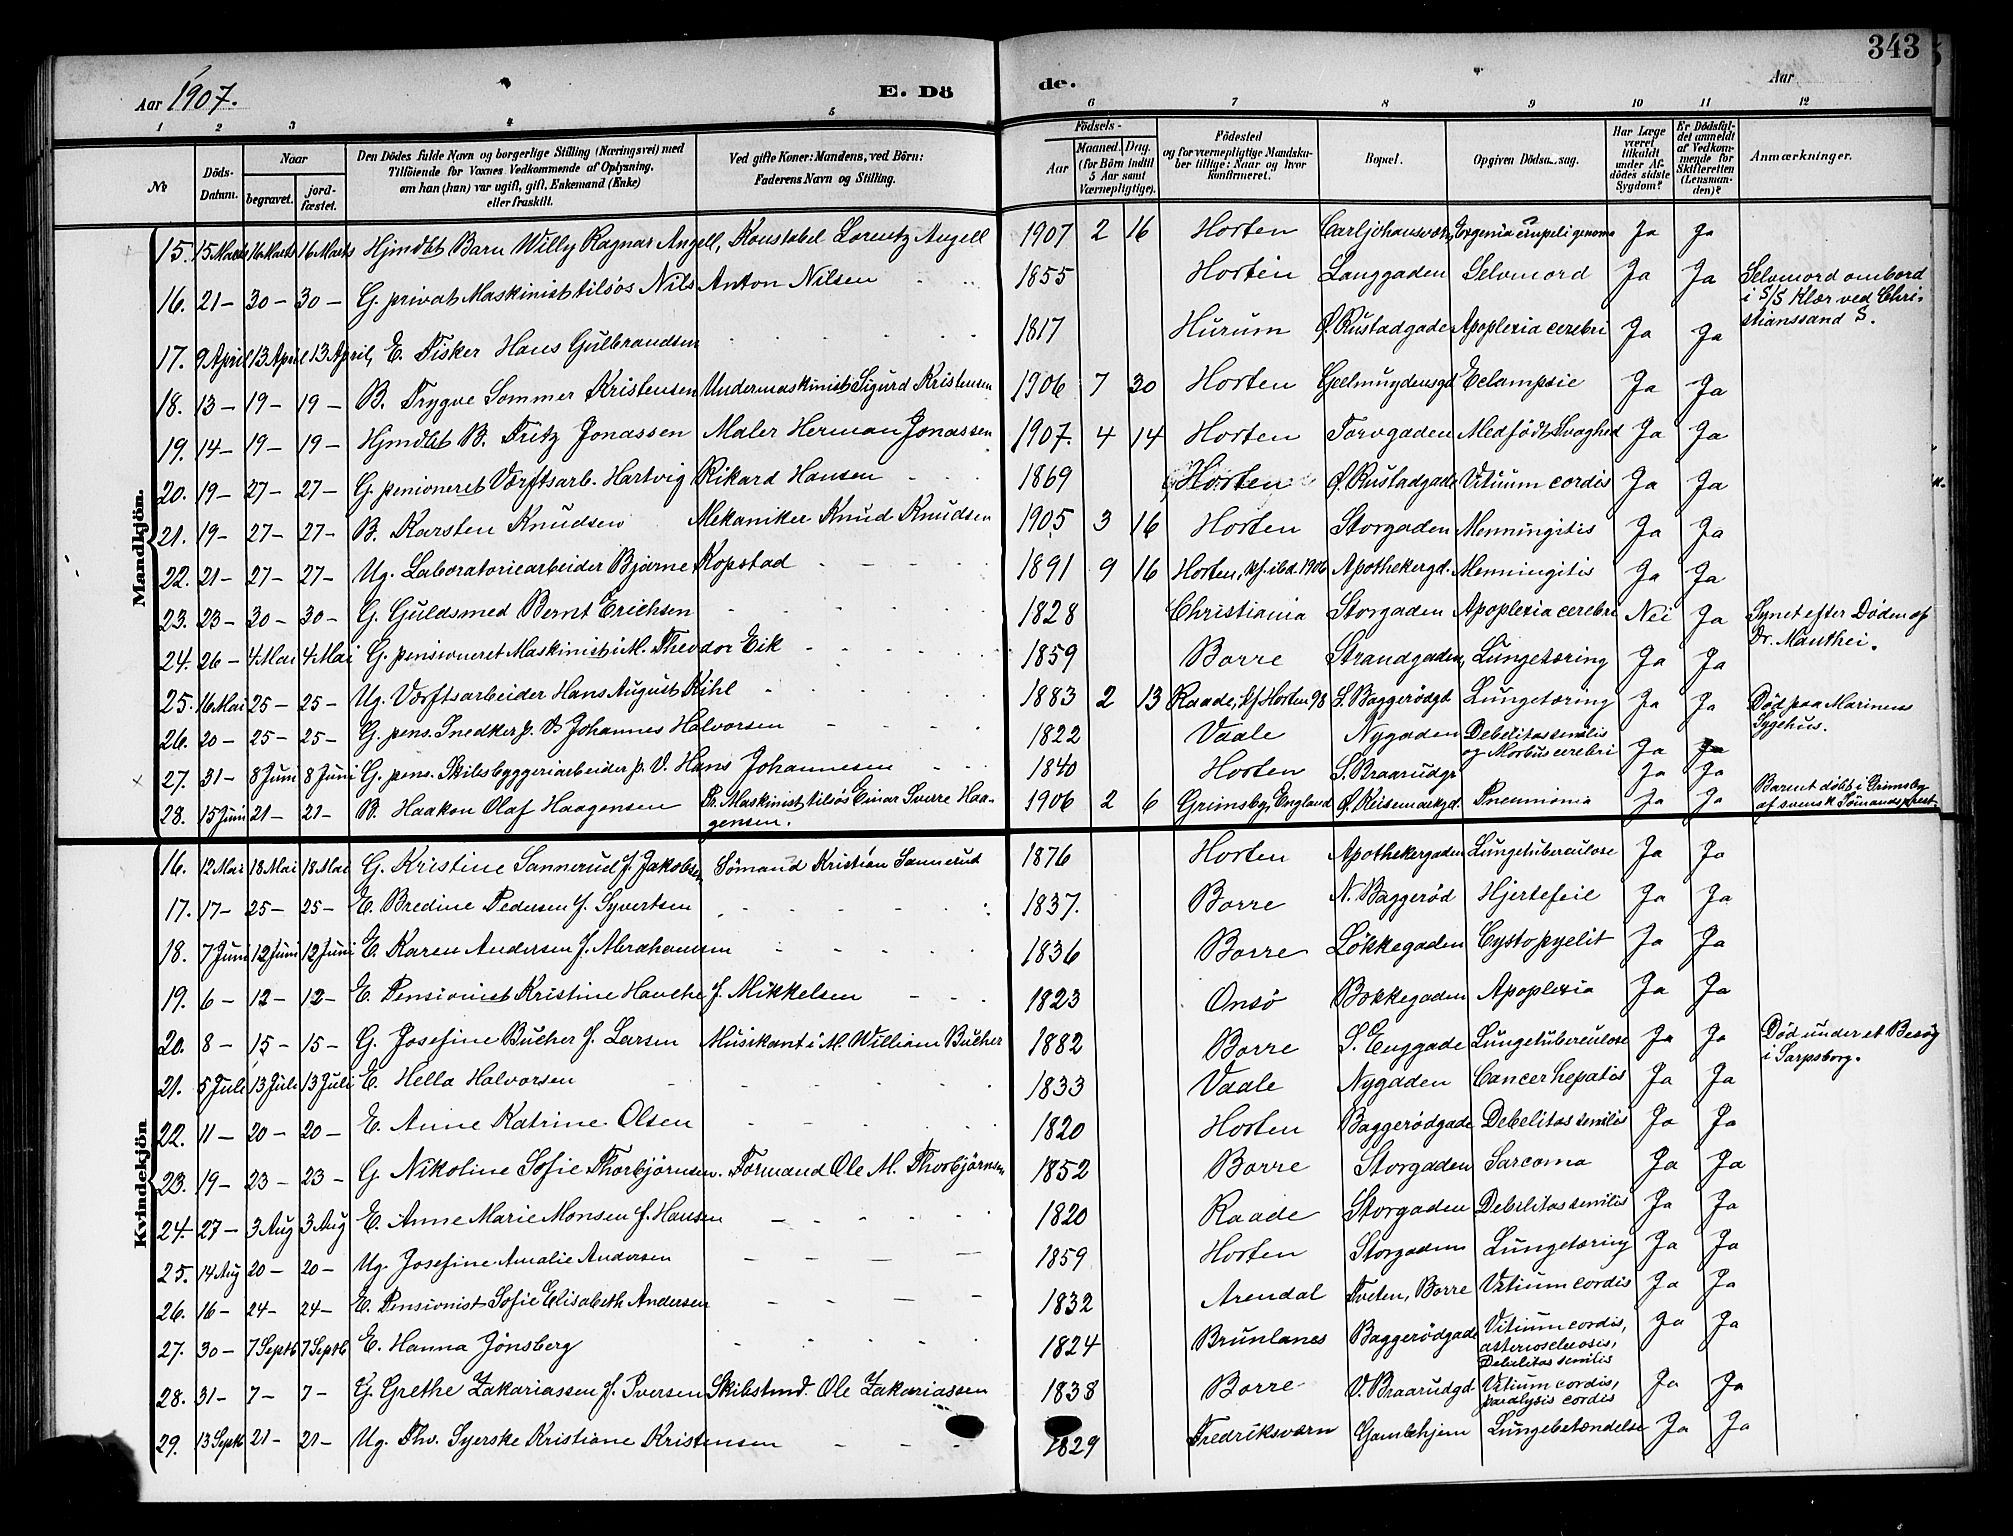 343
Aar 1907.
E. Dö
de.
Aar
1 2 3 4 5 6 7 8 9 10 11 12
No
Döds-Datum.
Naar
begravet.
jord-fæstet.
Den Dödes fulde Navn og borgerlige Stilling (Næringsvei) med
Tilföiende for Voxnes Vedkommende af Oplysning,
om han (hun) var ugift, gift, Enkemand (Enke)
eller fraskilt.
Ved gifte Koner: Mandens, ved Börn:
Faderens Navn og Stilling.
Födsels-
Aar
Maaned. Dag.
(for Börn indtil
5 Aar samt
Værnepligtige).
Födested
og for værnepligtige Mandskaber tillige: Naar og hvor konfirmeret.
Bopæl.
Opgiven Dödsaarsag.
Har Læge været tilkaldt under Afdödes sidste Sygdom?
Er Dödsfaldet anmeldt af Vedkommende for Skifteretten (Lensmanden)?
Anmærkninger.
Mandkjön.
15. 15 Marts 16 Marts 16 Marts Hjmdbt Barn Willy Ragnar Angell, Konstabel Lorentz Angell 1907 2 16 Horten Carljohansværn Ja Ja
16. 21– 30– 30– G. privat Maskinist tilsös Nils Anton Nilsen 1855 Horten Langgaden Selvmord Ja Ja Selvmord ombord i S/S Klær ved Christianssand S.
17. 9 April 13 April 13 April, E. Fisker Hans Gulbrandsen 1817 Hurum Ø. Rustadgade Apoplexia cerebri Ja Ja
18. 13– 19– 19– B. Trygve Sommer Kristensen Undermaskinist Sigurd Kristensen 1906 7 30 Horten Geelmuydensgd Eclampsie Ja Ja
19. 14– 19– 19– Hjmdbt B. Fritz Jonassen Maler Herman Jonassen 1907. 4 14 Horten Torvgaden Medfødt Svaghed Ja Ja
20. 19– 27– 27– G. penioneret Værftsarb. Hartvig Rikard Hansen 1869 Horten Ø. Rustadgade Vitium cordis Ja Ja
21. 19– 27– 27– B. Karsten Knudsen Mekaniker Knud Knudsen 1905 3 16 Horten Storgaden Menningitis Ja Ja
22. 21– 27– 27– Ug. Laboratoriearbeider Bjarne Kopstad 1891 9 16 Horten, kf. ibd. 1906 Apothekergd. Menningitis Ja Ja
23. 23– 30– 30– G. Guldsmed Bernt Erichsen 1828 Christiania Storgaden Apoplexia cerebri Nei Ja Synet efter Døden af Dr. Manthei.
24. 26– 4 Mai 4 Mai G. pensioneret Maskinist i M. Theodor Eik 1859 Borre Strandgaden, Lungetæring Ja Ja
25. 16 Mai 25– 25– Ug. Værftsarbeider Hans August Kihl 1883 2 13 Raade, kf Horten 98 S. Baggerödgd Lungetæring Ja Ja Død paa Marinens Sygehus.
26. 20– 25– 25– G. pens. Snedker p. V Johannes Halvorsen 1822 Vaale Nygaden Debelitas senilis og Morbus cerebri Ja Ja
27. 31– 8 Juni 8 Juni G. pens. Skibsbyggeriarbeider p. V. Hans Johannesen 1840 Horten S. Braarudgt Ja Ja
28. 15 Juni 21– 21– B. Haakon Olaf Haagensen Pr. Maskinist tilsös Einar Sverre Haagensen. 1906 2 6 Grimsby, England Ø. Keisemarkgd. Pneumonia Ja Ja Barnet döbt i Grimsby af svensk Sömandsprest
Kvindekjön
16. 12 Mai 18 Mai 18 Mai G. Kristine Sannerud f. Jakobsen Sömand Kristian Sannerud 1876 Horten Apothekergaden Lungetuberculose Ja Ja
17. 17– 25– 25– E. Bredine Pedersen f. Syvertsen 1837. Borre N. Baggeröd Hjertefeil Ja Ja
18. 7 Juni 12 Juni 12 Juni E. Karen Andersen f. Abrahamsen 1836 Borre Løkkegaden Cystopyelit Ja Ja
19. 6– 12– 12– E. Pensionist Kristine Hauche f. Mikkelsen 1823 Onsö Bokkegaden Apoplexia Ja Ja
20. 8– 15– 15– G. Josefine Bucher f. Larsen Musikant i M. William Bucher 1882 Borre S. Enggade Lungetuberculose Ja Ja Død under et Besög i Sarpsborg.
21. 5 Juli 13 Juli 13 Juli E. Hella Halvorsen 1833 Vaale Nygaden Cancer hepatis Ja Ja
22. 11– 20– 20– E. Anne Katrine Olsen 1820 Horten Baggerödgade Debelitas senilis Ja Ja
23. 19– 23– 23– G Nikoline Sofie Thorbjörnsen. Formand Ole M. Thorbjörnsen 1852 Borre Storgaden Sarcoma Ja Ja
24. 27– 3 Aug 3 Aug E. Anne Marie Monsen f. Hansen 1820 Raade Storgaden Debilitas senilis Ja Ja
25. 14 Aug 20– 20– Ug. Josefine Amalie Andersen 1859 Horten Storgaden Lungetæring Ja Ja
26. 16– 24– 24– E. Pensionist Sofie Elisabeth Andersen 1832 Arendal Tveten, Borre Vitium cordis Ja Ja
27. 30– 7 Septb 7 Septb E. Hanna Jönsberg 1824 Brunlanes Baggerödgade Vitium cordis, Debelitas senilis Ja Ja
28. 31– 7– 7– G. Grethe Zakariassen f. Iversen Skibstmd. Ole Zakariassen 1838 Borre V. Braarudgd Vitium cordis, paralysis cordis Ja Ja
29. 13 Septb 21– 21– Ug. Fhv. Syerske Kristiane Kristensen 1829 Fredriksværn Gamlehjem Lungebetændelse Ja Ja